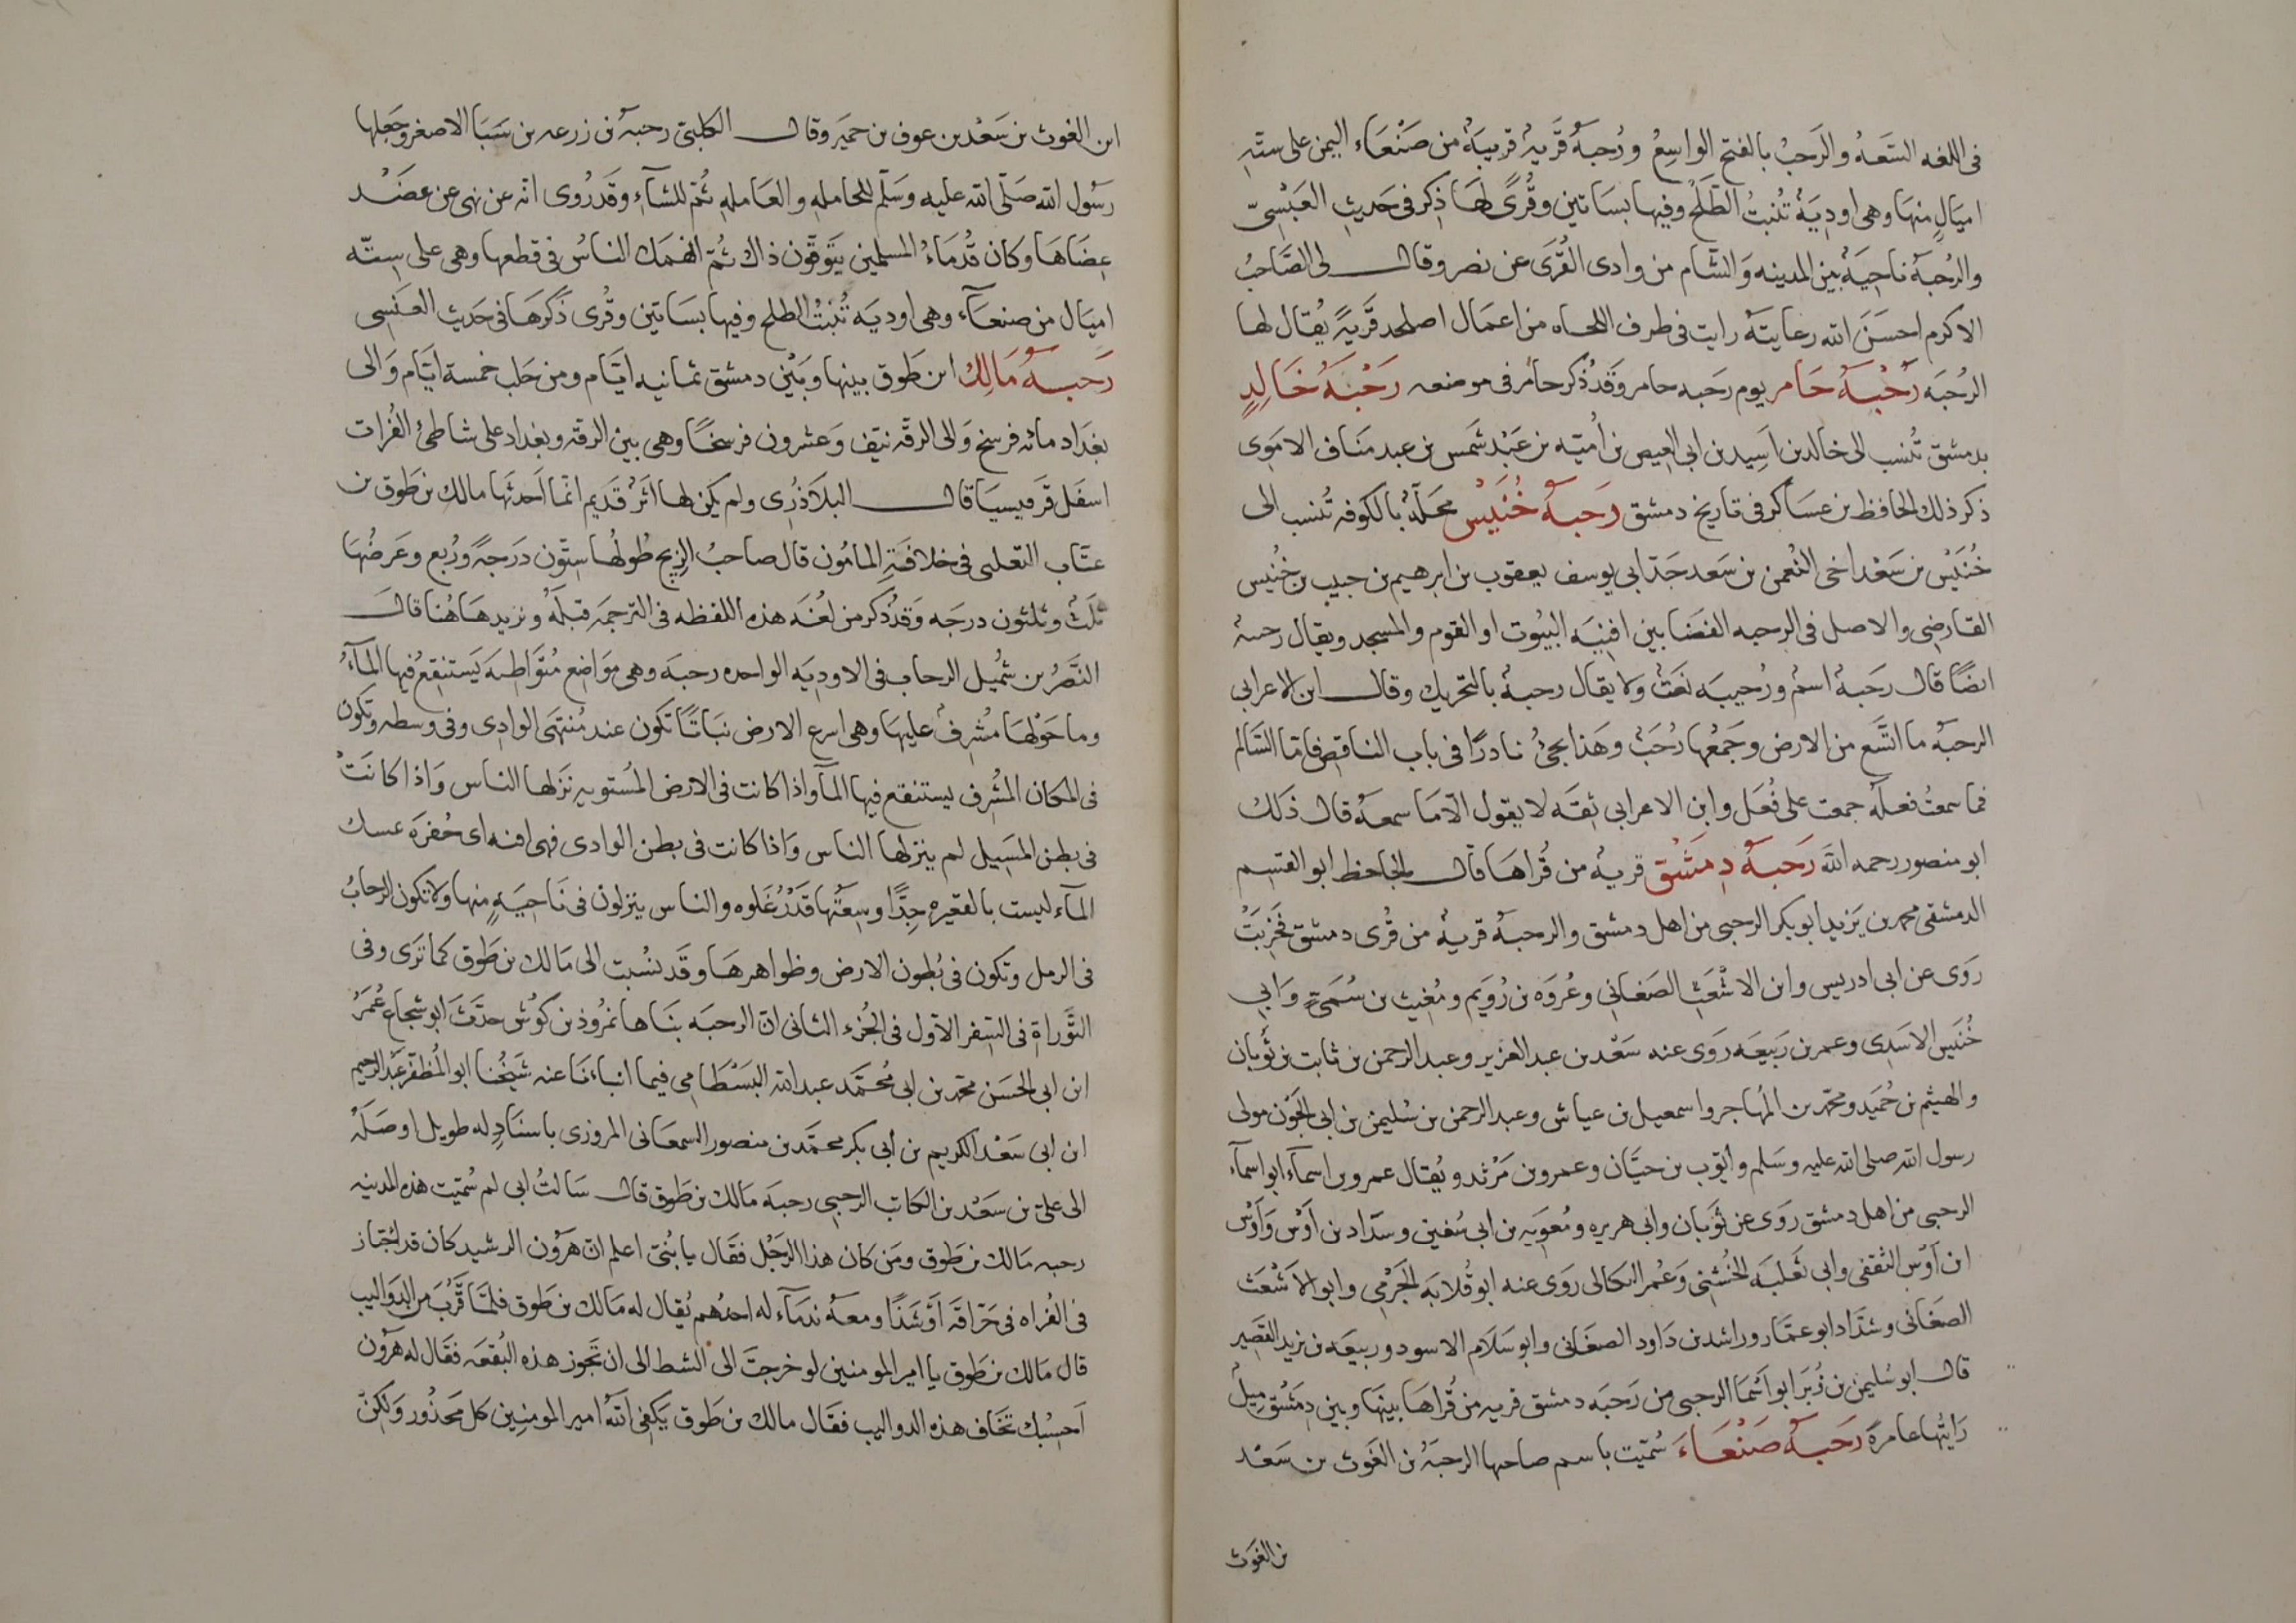 فى اللغه السَّعَهُ والرَحبُ بالفتح الواسِعُ ورُحبةُ قَريهٌ قريبَهٌ من صَنْعَاء اليمن على ستّهِ
اميَالٍ منهَا وهى اودِيَةٌ تُنبتُ الطَّلحُ وفيها بسَاتين وقُرىً لهَا ذِكر فى حَديثِ العَبْسِىّ
والرُحبَةُ ناحِيَةٌ بين المدينه وَالشّام من وادى القُرَى عن نصر وقال لى الصَّاحبُ
الاكرم احسَنَ الله رعايتَهُ رايت فى طرف اللحاه من اعمَال اصلخد قَريةً يُقال لها
الرُحبَه رُحْبَةُ حَامر يوم رَحبه حامر وَقَدْ ذُكر حامُر فى موضعه رَحْبَةُ خَالِدٍ
بدمشق تُنسب الى خالد بن اَسِيد بن ابى العيص بن اُميّه بن عَبْد شَمس بن عبد مَنَاف الامَوِى
ذكر ذلك الحافظ بن عسَاكر فى تاريخ دمشق رَحبَةُ خُنَيْس محَلَّةٌ بالكوفه تُنسب الى
خُنَيْس بن سَعْد اخى النُعمن بن سَعد جَدّ ابى يوسف يعقوب بن ابرهيم بن حبيب بن خُنيس
القاضِى والاصل فى الرحبه الفضَا بين افنِيَه البيُوت او القوم والمسجد ويقال رحبهٌ
ايضًا قال رَحَبةٌ اسمٌ ورُحيبَه نعَتٌ ولا يقال رحبةٌ بالتحريك وقال ابن الاعرابى
الرحبةُ ما اتسَّع من الارض وجَمَعُها رُحَبٌ وهَذا يجىُ نادرًا فى باب الناقص فامّا السَّالم
فما سمعتُ فعلَةً جمعت على فُعَل وابن الاعرابى ثِقَه لا يقول الّا مَا سمعَهُ قال ذَلك
ابو منصور رحمه الله رَحبةُ دِمَشْق قريهٌ من قُراهَا قال الحافظ ابو القسِم
الدمشقى محمد بن يَزيد ابو بكر الرحبى من اهل دمشق والرحبةُ قريةٌ من قُرى دمشق فخَرِبَتْ
رَوى عن ابى ادريس وابن الاشْعَثِ الصَغانِى وعُروَه بن رُوَيم ومُغيث بن سُمَىّ وَابى
خُنَيس الاسَدِى وعمر بن رَبيعَه رَوى عنه سَعْد بن عبد العَزير وعبد الرحمن بن ثابت بن ثَوبان
والهيثم بن حُمَيد ومحّمد بن المُهاجر واسمعيل بن عياش وعبد الرحمن بن سُليمن بن ابى الجَوْن مولى
رسول الله صلى الله عليه وسَلم وايّوب بن حيَّان وعمرو بن مَرْثد ويُقال عمرو بن اسمآء ابو اسمآء
الرحبى من اهل دمشق رَوى عن ثَوبان وابى هريره ومُعوِيه بن ابى سُفين وسدّاد بن اَوْس وَاَوْس
ابن اَوْس الثقفى وابى ثَعلبَه الخُشنى وَعُمر البكالى رَوى عنه ابو قُلابَه الجَرْمى وابو الاَشْعَث
الصَغانى وشدّاد ابو عمّار وراشد بن دَاود الصغَانى وابو سَلَام الاسود وربيعَه بن يزيد القصِير
قال ابو سُليمن بن زُبَر ابو اَسْمَا الرحبى من رَحبَه دمشق قريه من قُراهَا بينَها وبين دِمَشْق مِيلٌ
رَايتُها عامرةً رَحَبةُ صَنْعَاءَ سُمّيت باسم صاحبها الرحبَةُ بن الغَوث بن سَعْد
بن الغَوث
ابن الغوث بن سَعْد بن عوف بن حميَر وقال الكلبىّ رحبَة بن زرعه بن سَبَا الاصغر وجَعلها
رسُول الله صَلّى الله عليه وسَلّم للحامله والعَامله ثُمّ للشآءِ وقَد رُوى انّه عن نهى عن عضَد
عِضَاهَا وكان قُدمَاءُ المسلمين يَتَوقّون ذاك ثُمّ انهَمك الناسُ فى قطعها وهى على ستّه
اميَال من صنعآء وهى اوديَه تُنبتُ الطلح وفيها بسَاتين وقُرى ذكَرهَا فى حَديث العَنَسِى
رَحبةُ مَالِك ابن طَوق بينها وبَيْن دمشق ثمانيه ايّام ومن حَلب خمسة ايّام وَالى
بغدَاد مائه فرسخ وَالى الرقّه نيّف وَعشرون فرسخًا وهى بين الرقّه وبغداد على شاطئ الفُرات
اسفَل قَرقيسيَا قال البلاَذُرِى ولم يكن لها اَثَرٌ قَديم انمّا اَحدثَها مالك بن طَوق بن
عتّاب التغلبى فى خلافَةِ المامُون قال صاحبُ الزيج طُولُها ستّون دَرَجةً ورُبع وعَرضُها
ثلَث وثلثون درجَه وَقَدْ ذُكر من لُغَه هذه اللفظه فى الترجمَه قبلَهُ ونزيدهَا هُنا قال
النَّضرُ بن شُميْل الرحاب فى الاودِيَه الواحده رحبَة وهى موَاضع مُتواطِئَه يَستنقِعُ فيها المآءُ
وما حَوْلَهَا مُشرِفٌ عليهَا وهى اسرع الارض نبَاتًا تكون عند مُنتهَى الوادى وفى وسطه وتكون
فى المكان المُشرِف يستنقع فيها المآء واذا كانت فى الارض المُستويه نَزلها الناس وَاذا كانَتْ
فى بطن المَسَيِل لم ينزلها الناس وَاذا كانت فى بطن الوادى فهى اقنه اى حُفرَة تمسك
المآء ليست بالقعيره جِدًّا وسِعتُها قَدْرُ غَلوه والناس ينزلون فى نَاحيَةٍ منها ولا تكون الرّحابُ
فى الرمل وتكون فى بُطون الارض وظواهرهَا وقَد نُسبت الى مَالك بن طَوق كما تَرَى وفى
التَّوراةِ فى السِفر الاول فى الجُزء الثانى انّ الرحبَه بنَاها نمرُوذ بن كوُش حدَّثَ ابو شجاع عُمَرُ
ابن ابى الحسَن محّمد بن ابى مُحمّد عبد الله البَسْطَامى فيما انباءنَا عنه شَيخُنا ابو المُظفّر عَبْد الرحيم
ابن ابى سَعْد الكريم بن ابى بكر محمَّد بن منصور السمعَانى المروزى باسنَادٍ له طويل اوصَلَهُ
الى على بن سَعْد بن الكاتب الرحبى رحبَة مَالك بن طَوق قال سَالتُ ابى لم سُمّيَت هذه المدينه
رحبه مَالك بن طَوق ومَن كان هذا الرَجُل فقَال يا بُنىّ اعلم انّ هَرُون الرشيد كان قد اجْتاز
فى الفُراه فى حَرّاقَه اَوْشَدًا ومعَه ندمَآء له احدُهم يُقال له مَالك بن طَوق فلمَّا قَرُبَ من الدوَاليب
قال مَالك بن طَوق يا امير المومنين لو خرجتَ الى الشط الى ان تَجوز هذه البُقعَه فقَال له هَرُون
اَحسِبُك تخَاف هذه الدواليب فقَال مالك بن طَوق يَكفِى اللهُ امير المومنِين كل مَحذُور وَلكِنّ